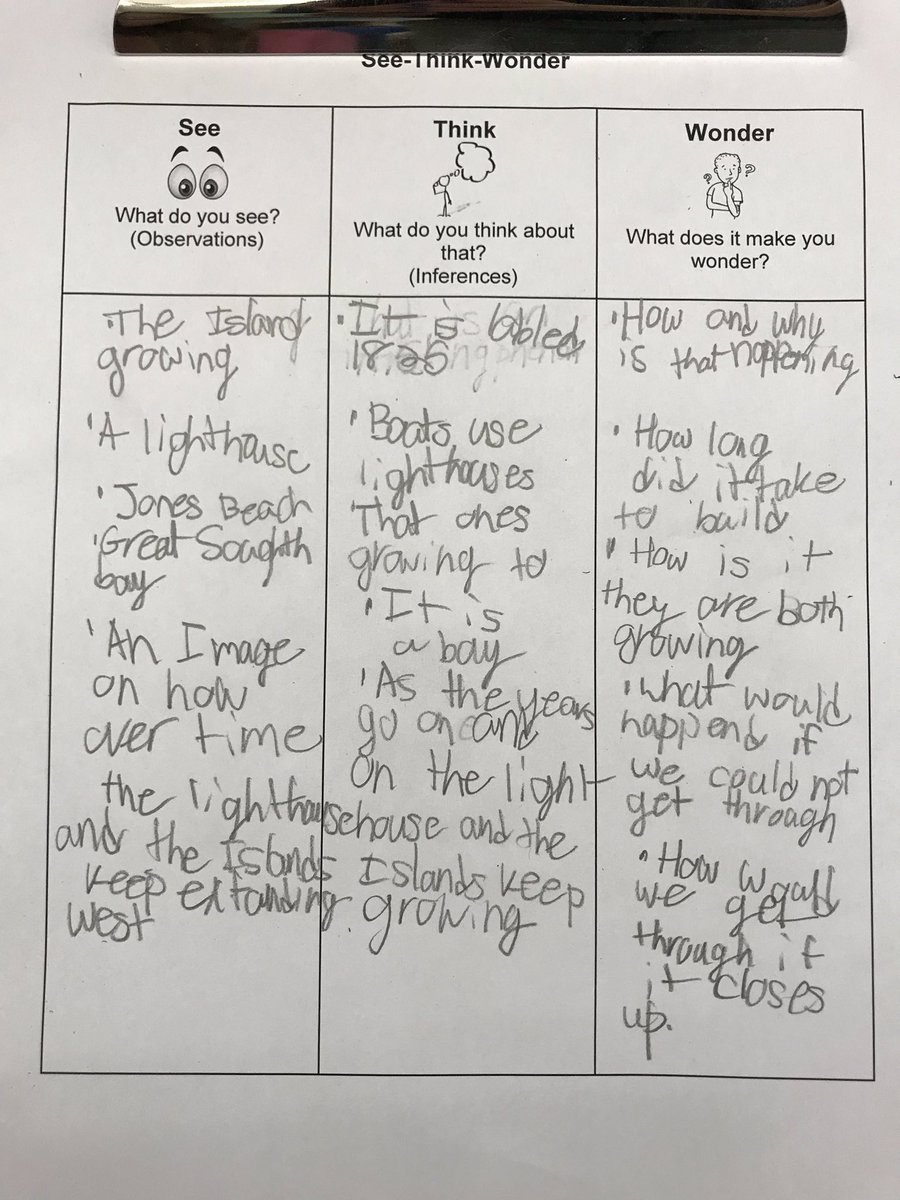 See-Think-Wonder
See
What do you see?
(Observations)
·The Island
growing
'A lighthouse
'Jones Beach
'Great Soughth
bay
'An Image
on how
over time
the lighthouse
and the Islands
keep extanding
west
Think
What do you think about
that?
(Inferences)
·It is labled
1825
'Boats use
lighthouses
That ones
growing to
'It is
a bay
'As the years
go on and
on the light
house and the
Islands keep
growing
Wonder
? ?
What does it make you
wonder?
·How and why
is that happening
·How long
did it take
to build
'How is it
they are both
growing
'what would
happend if
we could not
get through
'How would
we get
through if
it closes
up.